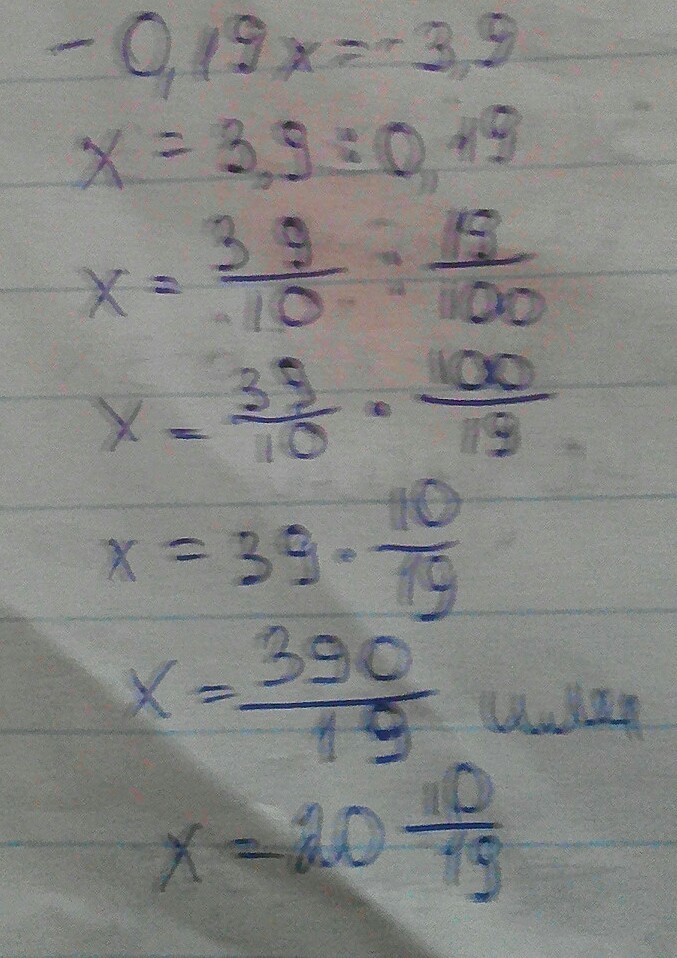 -0,19x=-3,9
x=3,9:0,19
x=39/10:19/100
x=39/10·100/19
x=39·10/19
x=390/19
x=20 10/19